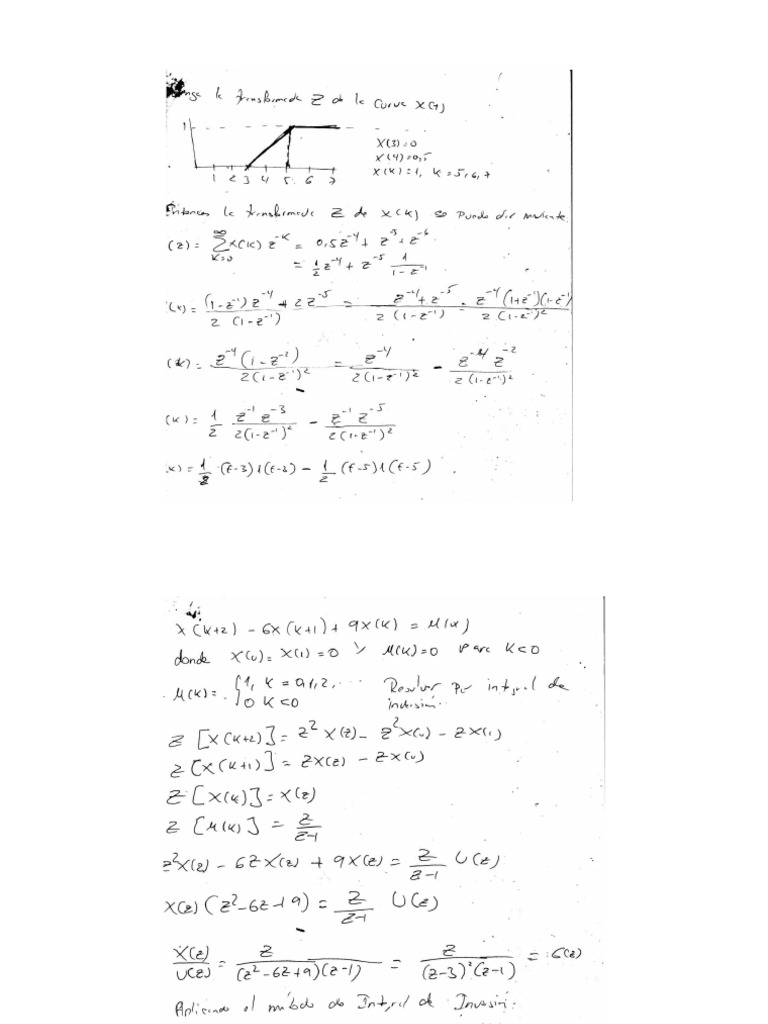 la transformada Z de la curva X(t)
1
1 2 3 4 5 6 7
X(3)=0
X(4)=0,5
X(K)=1, K=5,6,7
Entonces la transformada Z de X(K) se puede dar mediante.
(z) = ∞∑K=0 X(K) z^-K = 0,5z^-4 + z^-5 + z^-6
= 1/2 z^-4 + z^-5 1/(1-z^-1)
(K) = ((1-z^-1)z^-4 + 2z^-5)/(2(1-z^-1)) = (z^-4+z^-5)/(2(1-z^-1)) = (z^-4(1+z^-1)(1-z^-1))/(2(1-z^-1)^2)
(K) = (z^-4(1-z^-2))/(2(1-z^-1)^2) = z^-4/(2(1-z^-1)^2) - (z^-4 z^-2)/(2(1-z^-1)^2)
(K) = 1/2 (z^-1 z^-3)/(2(1-z^-1)^2) - (z^-1 z^-5)/(2(1-z^-1)^2)
K) = 1/2 (t-3)1(t-3) - 1/2 (t-5)1(t-5)
X(K+2) - 6X(K+1) + 9X(K) = μ(K)
donde X(0) = X(1) = 0 y μ(K)=0 para K<0
μ(K) = {1, K=0,1,2,... Resolver por integral de
0 K<0 inversión.
Z [X(K+2)] = z^2 X(z) - z^2 X(0) - zX(1)
Z [X(K+1)] = zX(z) - zX(0)
Z [X(K)] = X(z)
Z [μ(K)] = z/(z-1)
z^2X(z) - 6zX(z) + 9X(z) = z/(z-1) U(z)
X(z) (z^2-6z+9) = z/(z-1) U(z)
X(z)/U(z) = z/((z^2-6z+9)(z-1)) = z/((z-3)^2(z-1)) = G(z)
Aplicando el método de Integral de Inversión.